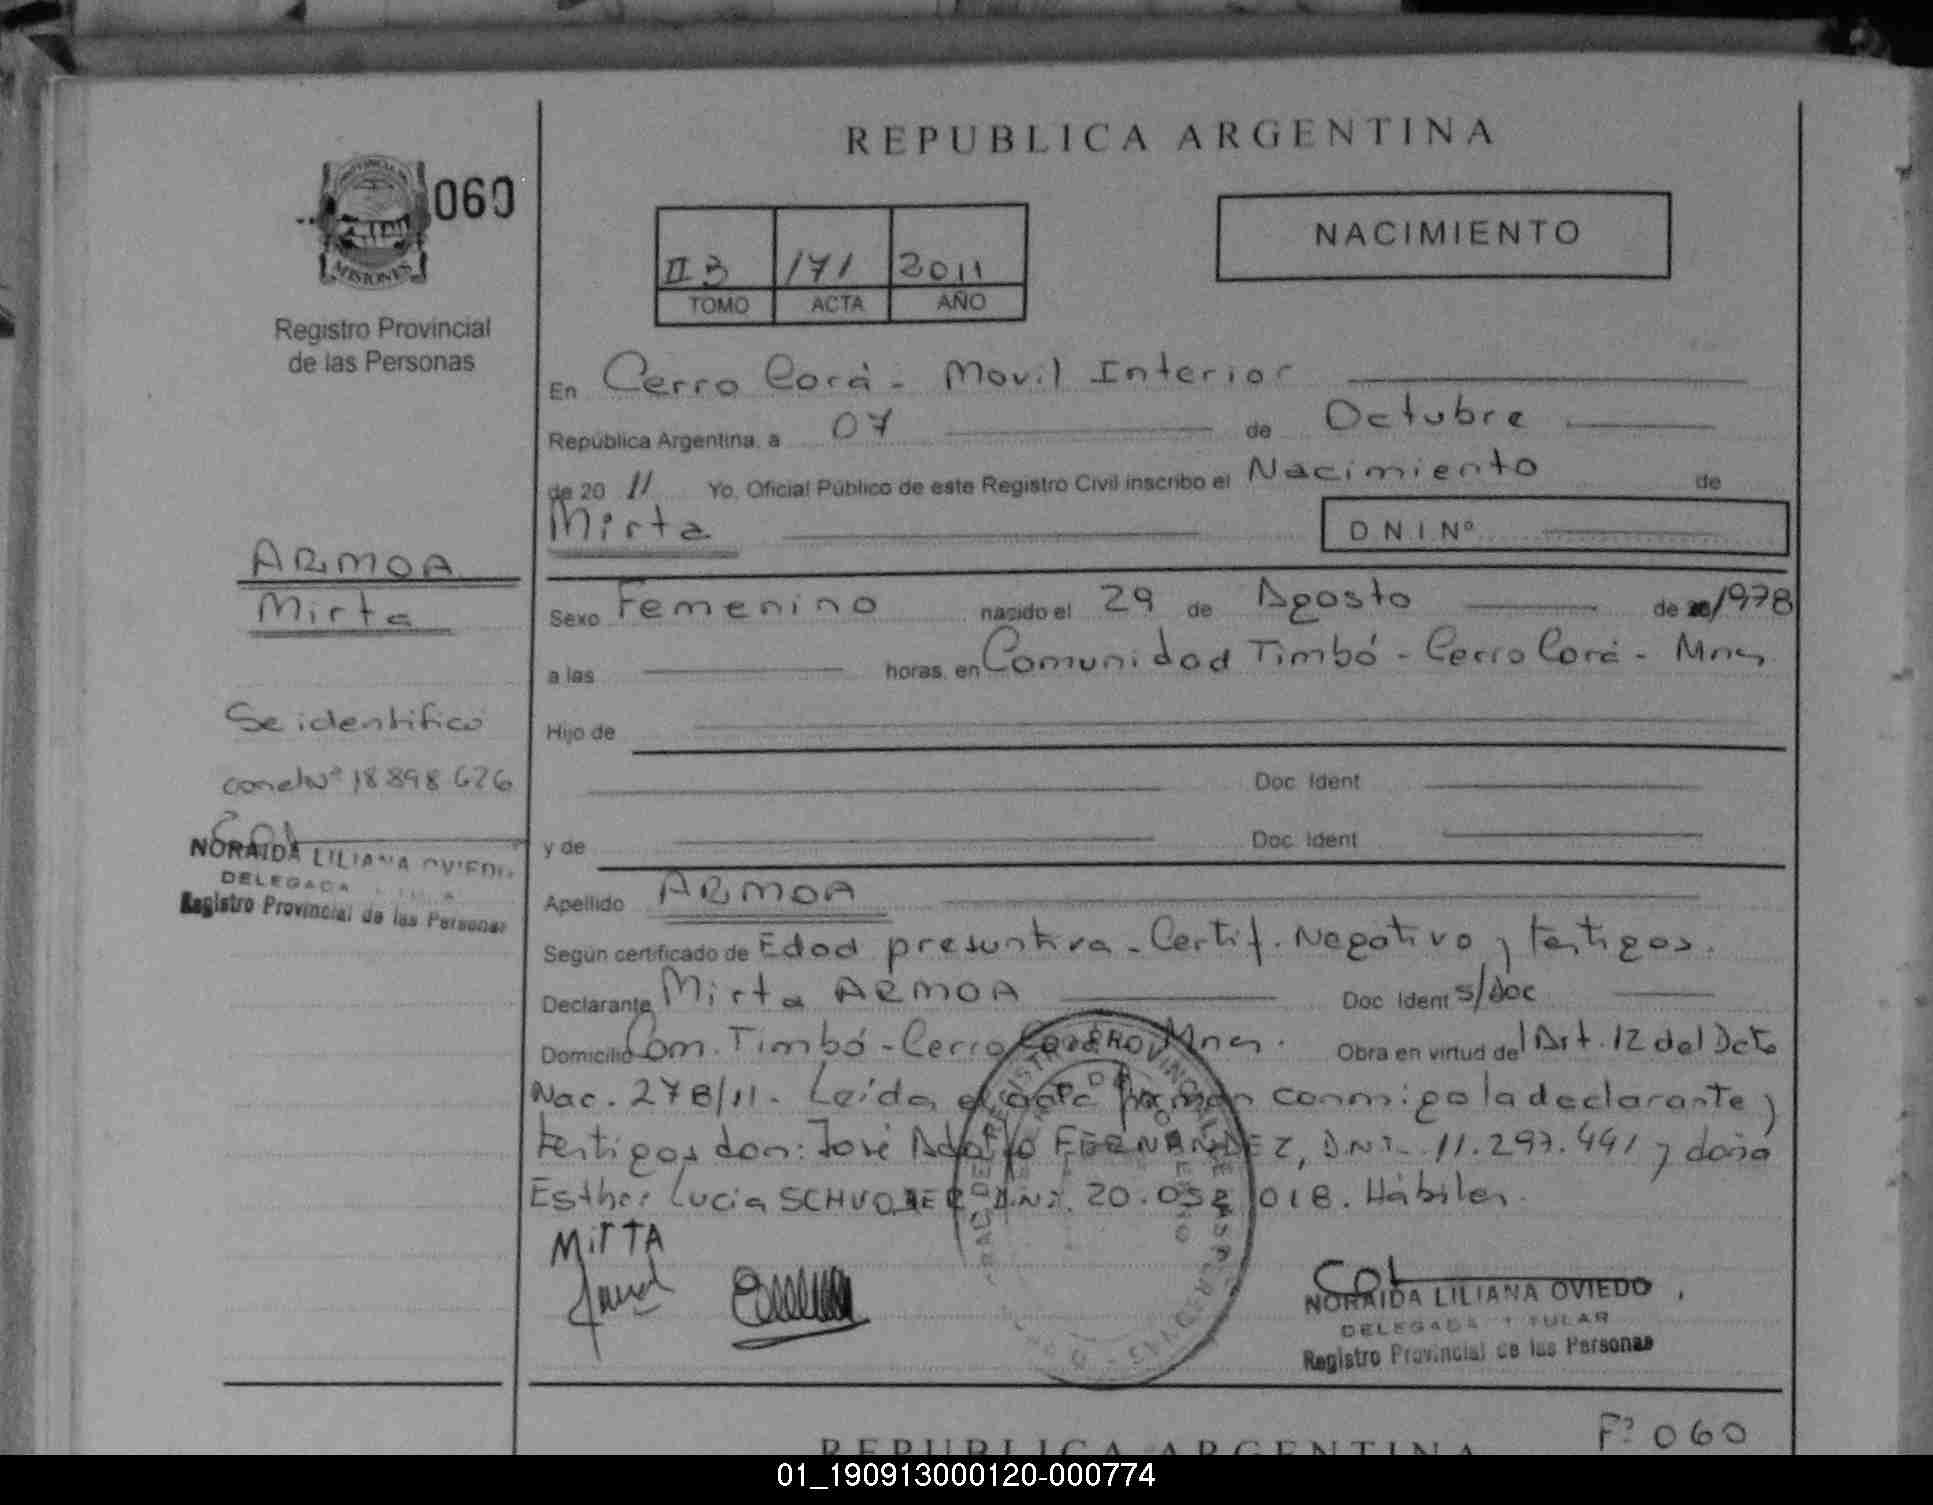 REPUBLICA ARGENTINA
060
MISIONES
Registro Provincial
de las Personas
NACIMIENTO
II B 171 2011
TOMO ACTA AÑO
En Cerro Corá - Movil Interior
República Argentina, a 07 de Octubre
de 20 11 Yo, Oficial Público de este Registro Civil inscribo el Nacimiento de
Mirta
D N I Nº
ARMOA
Mirta
Sexo Femenino nacido el 29 de Agosto de 1978
a las horas, en Comunidad Timbó - Cerro Corá - Mnes
Hijo de
Doc. Ident
y de Doc. Ident
Se identificó
con el Nº 18 898 626
NORAIDA LILIANA OVIEDO
DELEGADA
Registro Provincial de las Personas
Apellido ARMOA
Según certificado de Edad presuntiva - Certif. Negativo y testigos.
Declarante Mirta ARMOA Doc. Ident s/doc
Domicilio Com. Timbó - Cerro Corá Mnes. Obra en virtud del Art. 12 del Dcto
Nac. 278/11. Leída el acta firman conmigo la declarante y
testigos don: José Adolfo FERNANDEZ, D.N.I. 11.297.491 y doña
Esther Lucia D.N.I. 20.052 018. Hábiles.
MirTA
NORAIDA LILIANA OVIEDO
DELEGADA TITULAR
Registro Provincial de las Personas
Fº 060
REPUBLICA ARGENTINA
01_190913000120-000774